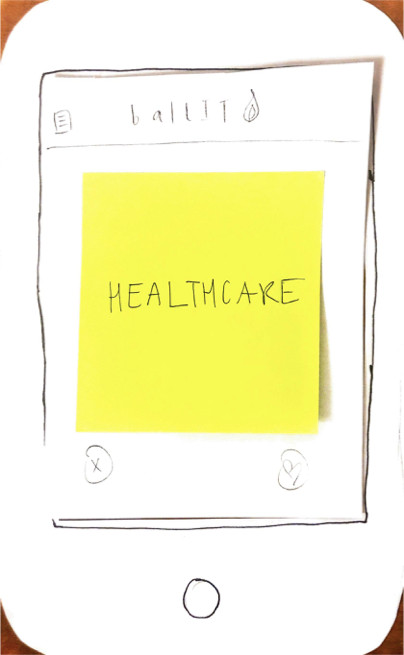 ballIT
HEALTHCARE
X